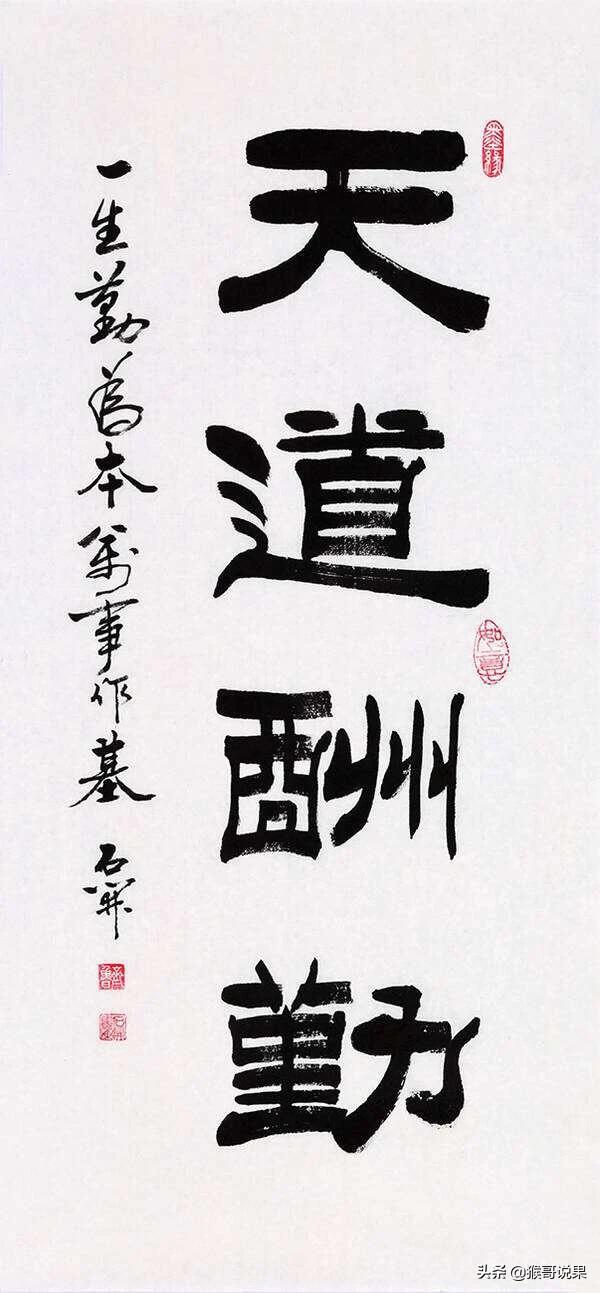 天道酬勤
如意
一生勤為本萬事作基
石开
头条 @猴哥说果